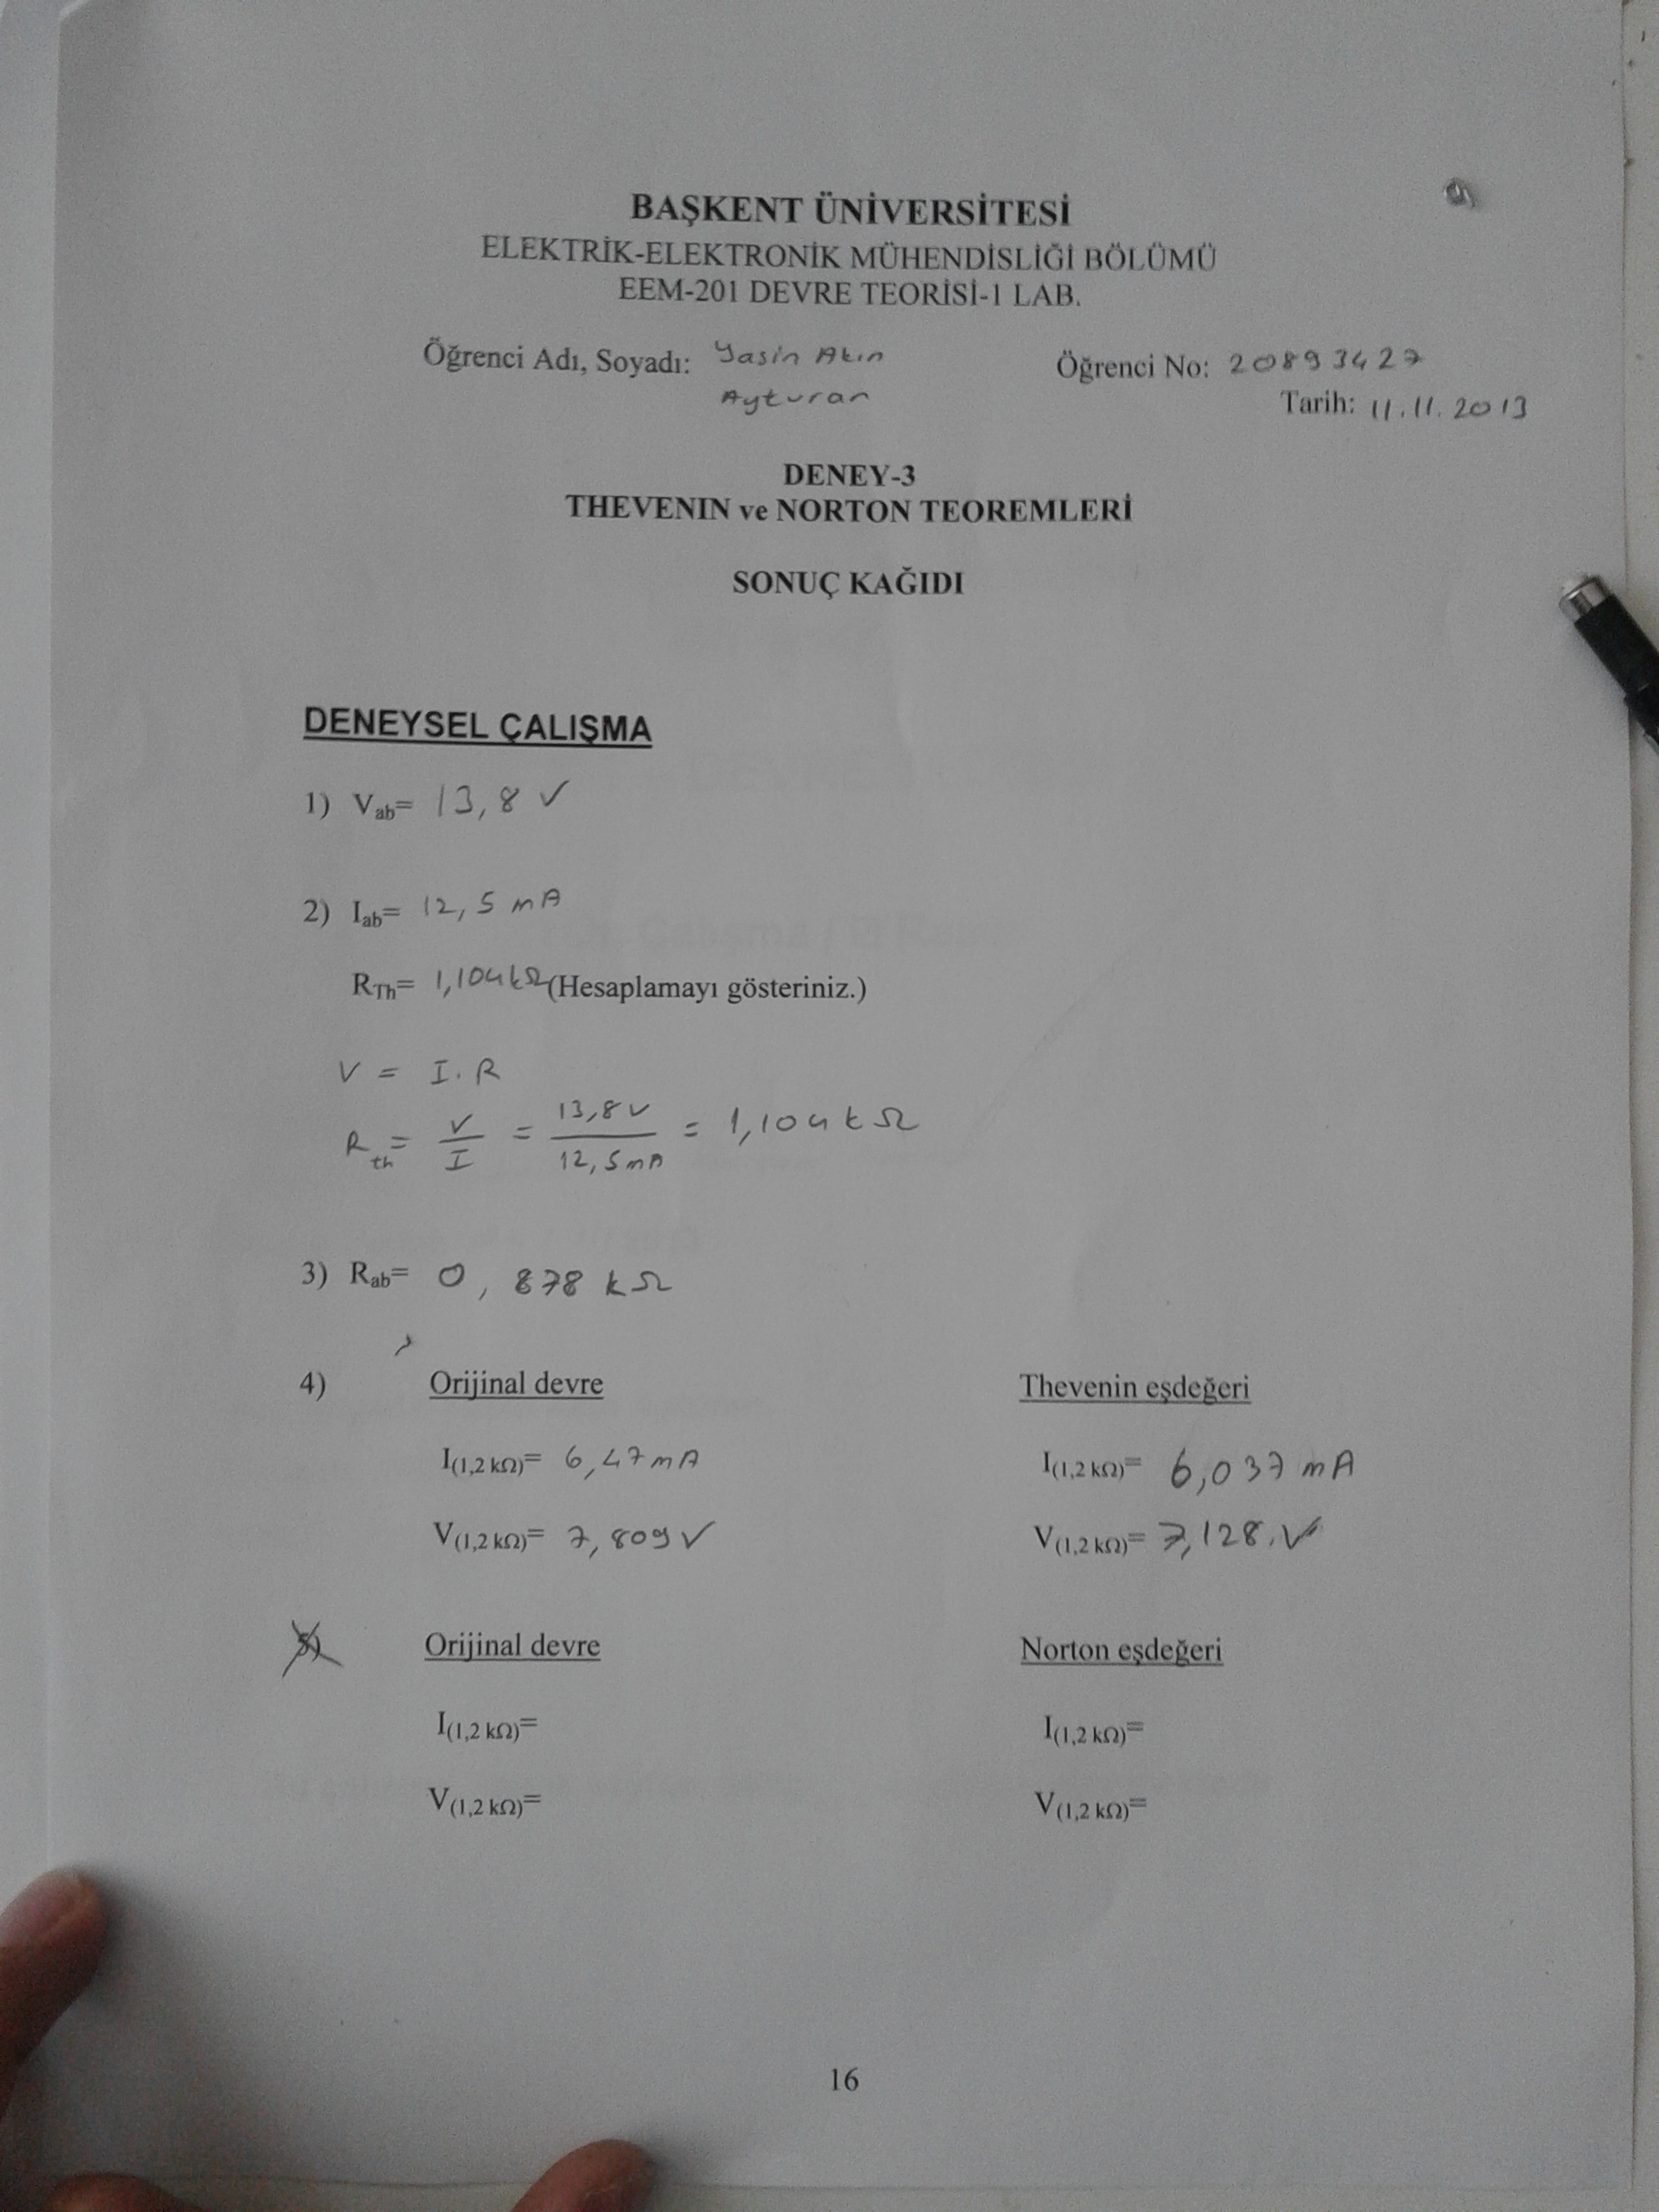 BAŞKENT ÜNİVERSİTESİ
ELEKTRİK-ELEKTRONİK MÜHENDİSLİĞİ BÖLÜMÜ
EEM-201 DEVRE TEORİSİ-1 LAB.
Öğrenci Adı, Soyadı: Yasin Akın Öğrenci No: 20893427
Ayturan Tarih: 11.11.2013
DENEY-3
THEVENIN ve NORTON TEOREMLERİ
SONUÇ KAĞIDI
DENEYSEL ÇALIŞMA
1) Vab= 13,8 V
2) Iab= 12,5 mA
RTh= 1,104kΩ (Hesaplamayı gösteriniz.)
V = I.R
Rth = V/I = 13,8V/12,5mA = 1,104kΩ
3) Rab= 0,878 kΩ
4) Orijinal devre Thevenin eşdeğeri
I(1,2 kΩ)= 6,47mA I(1,2 kΩ)= 6,037 mA
V(1,2 kΩ)= 7,809V V(1,2 kΩ)= 7,128.V
5) Orijinal devre Norton eşdeğeri
I(1,2 kΩ)= I(1,2 kΩ)=
V(1,2 kΩ)= V(1,2 kΩ)=
16